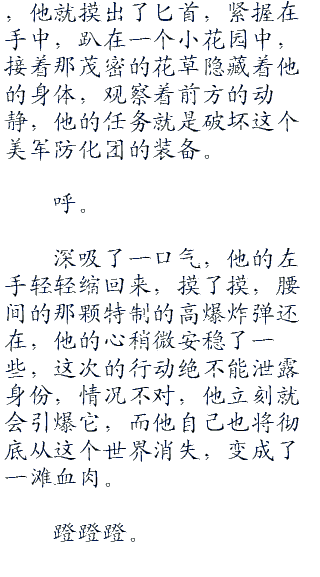 ，他就摸出了匕首，紧握在
手中，趴在一个小花园中，
接着那茂密的花草隐藏着他
的身体，观察着前方的动
静，他的任务就是破坏这个
美军防化团的装备。
呼。
深吸了一口气，他的左
手轻轻缩回来，摸了摸，腰
间的那颗特制的高爆炸弹还
在，他的心稍微安稳了一
些，这次的行动绝不能泄露
身份，情况不对，他立刻就
会引爆它，而他自己也将彻
底从这个世界消失，变成了
一滩血肉。
蹬蹬蹬。